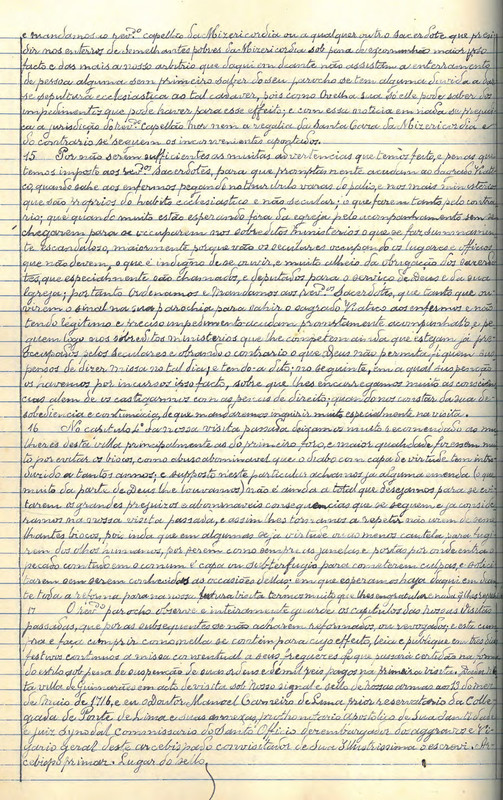 e mandamos ao rev.do capellão da Mizericordia ou a qualquer outro sacerdote que presi
dir nos enterros de semelhantes pobres da Mizericordia sob pena de excomunhão maior ipso
facto e dos mais a nosso arbitrio que daqui em deante não assistam a enterramento
de pessoa alguma sem primeiro saber do seu parocho se tem alguma duvida a dar
se sepultura ecclesiastica ao tal cadaver, pois como ovelha sua só elle pode saber dos
impedimentos que pode haver para esse effeito; e com essa noticia em nada se prejudi
ca a jurisdição do rev.do Capellão mor nem a regalia da Santa Casa da Mizericordia e
do contrario se seguem os inconvenientes apontados.
15 Por não serem sufficientes as muitas advertencias que temos feito, e penas que
temos imposto aos rev.dos Sacerdotes, para que promptamente acudam ao Sagrado Viati
co, quando sahe aos enfermos pegando no thuribulo varas do palio, e nos mais ministerios
que são proprios do habito ecclesiastico e não secular; o que fazem tanto pelo contra
rio; que quando muito estão esperando fora da egreja pelo acompanhamento sem se
chegarem para se occuparem nos sobreditos ministerios o que se faz summamen
te escandaloso, maiormente porque vão os seculares occupando os lugares e officios,
que não devem, o que é indigno de se ouvir, e muito alheio da obrigação dos sacerdo
tes, que especialmente são chamados, e deputados para o serviço de Deus e da sua
Egreja; portanto ordenamos e mandamos aos rev.dos Sacerdotes, que tanto que ou
virem o sinal na sua parochia para sahir o sagrado Viatico aos enfermos e não
tendo legitimo e preciso impedimento acudam promptamente acompanhal-o, e pe
guem logo nos sobreditos ministerios que lhe competem ainda que estejam já pre
occupados pelos seculares e obrando o contrario o que Deus não permita, fiquem sus
pensos de dizer missa no tal dia, e tendo-a dito, no seguinte, em a qual suspensão
os havemos por incursos ipso facto, sobre que lhes encarregamos muito as conscien
cias alem de os castigarmos com as penas de direito, quando nos constar da sua de
sobediencia e contumacia, de que mandaremos inquirir muito especialmente na visita.
16 No capitulo 4.º da nossa visita passada deixamos muito recomendado as mu
lheres desta villa principalmente as do primeiro foro, e maior qualidade fossem mui
to por evitar os biocos, como abuso abominavel que o diabo com capa de virtude tem intro
duzido a tantos annos; e supposto n'este particular achamos já alguma emenda (o que
muito da parte de Deus lhe louvamos) não é ainda a total que desejamos para se evi
tarem os grandes prejuizos e abominaveis consequencias que se seguem e ja conside
ramos na nossa visita passada, e assim lhes tornamos a repetir não usem de seme
lhantes biocos, pois inda que em algumas seja virtude ou ao menos cautela para fugi
rem dos olhos humanos, por serem como sempre as janelas e portas por onde entra o
pecado comtudo em o comum é capa ou subterfugio para cometerem culpas, e solici
tarem sem serem conhecidas as occasiões dellas: em que esperamos haja daqui em dian
te toda a reforma para na nossa futura visita termos muito que lhes engrandecer e nada q lhes reprehender
17 O rev.do parocho observe e inteiramente guarde os capitulos das nossas visitas
passadas, que por as subsequentes se não acharem reformados, ou revogados, e esta cum
pra e faça cumprir como nella se contem para cujo effeito, leia e publique em tres dias
festivos continuos a missa conventual a seus freguezes de que passará certidão na forma
do estilo sob pena de suspensão de suas ordens e de mil reis pagos na primeira visita. Dada nes
ta villa de Guimarães em acto de visita sob nosso signal e sello de nossas armas aos 13 do mez
de Maio de 1716, e eu o Doutor Manoel Carneiro de Lima, prior reservatario da Colle
giada de Ponte de Lima e suas annexas, prothonotario apostolico de Sua Santidade
e juiz synodal commissario do Santo Officio dezembargador do aggravo e Vi
gario Geral deste arcebispado convisitador de Sua Illustrissima o escrevi. Ar
cebispo primaz. Lugar do sello